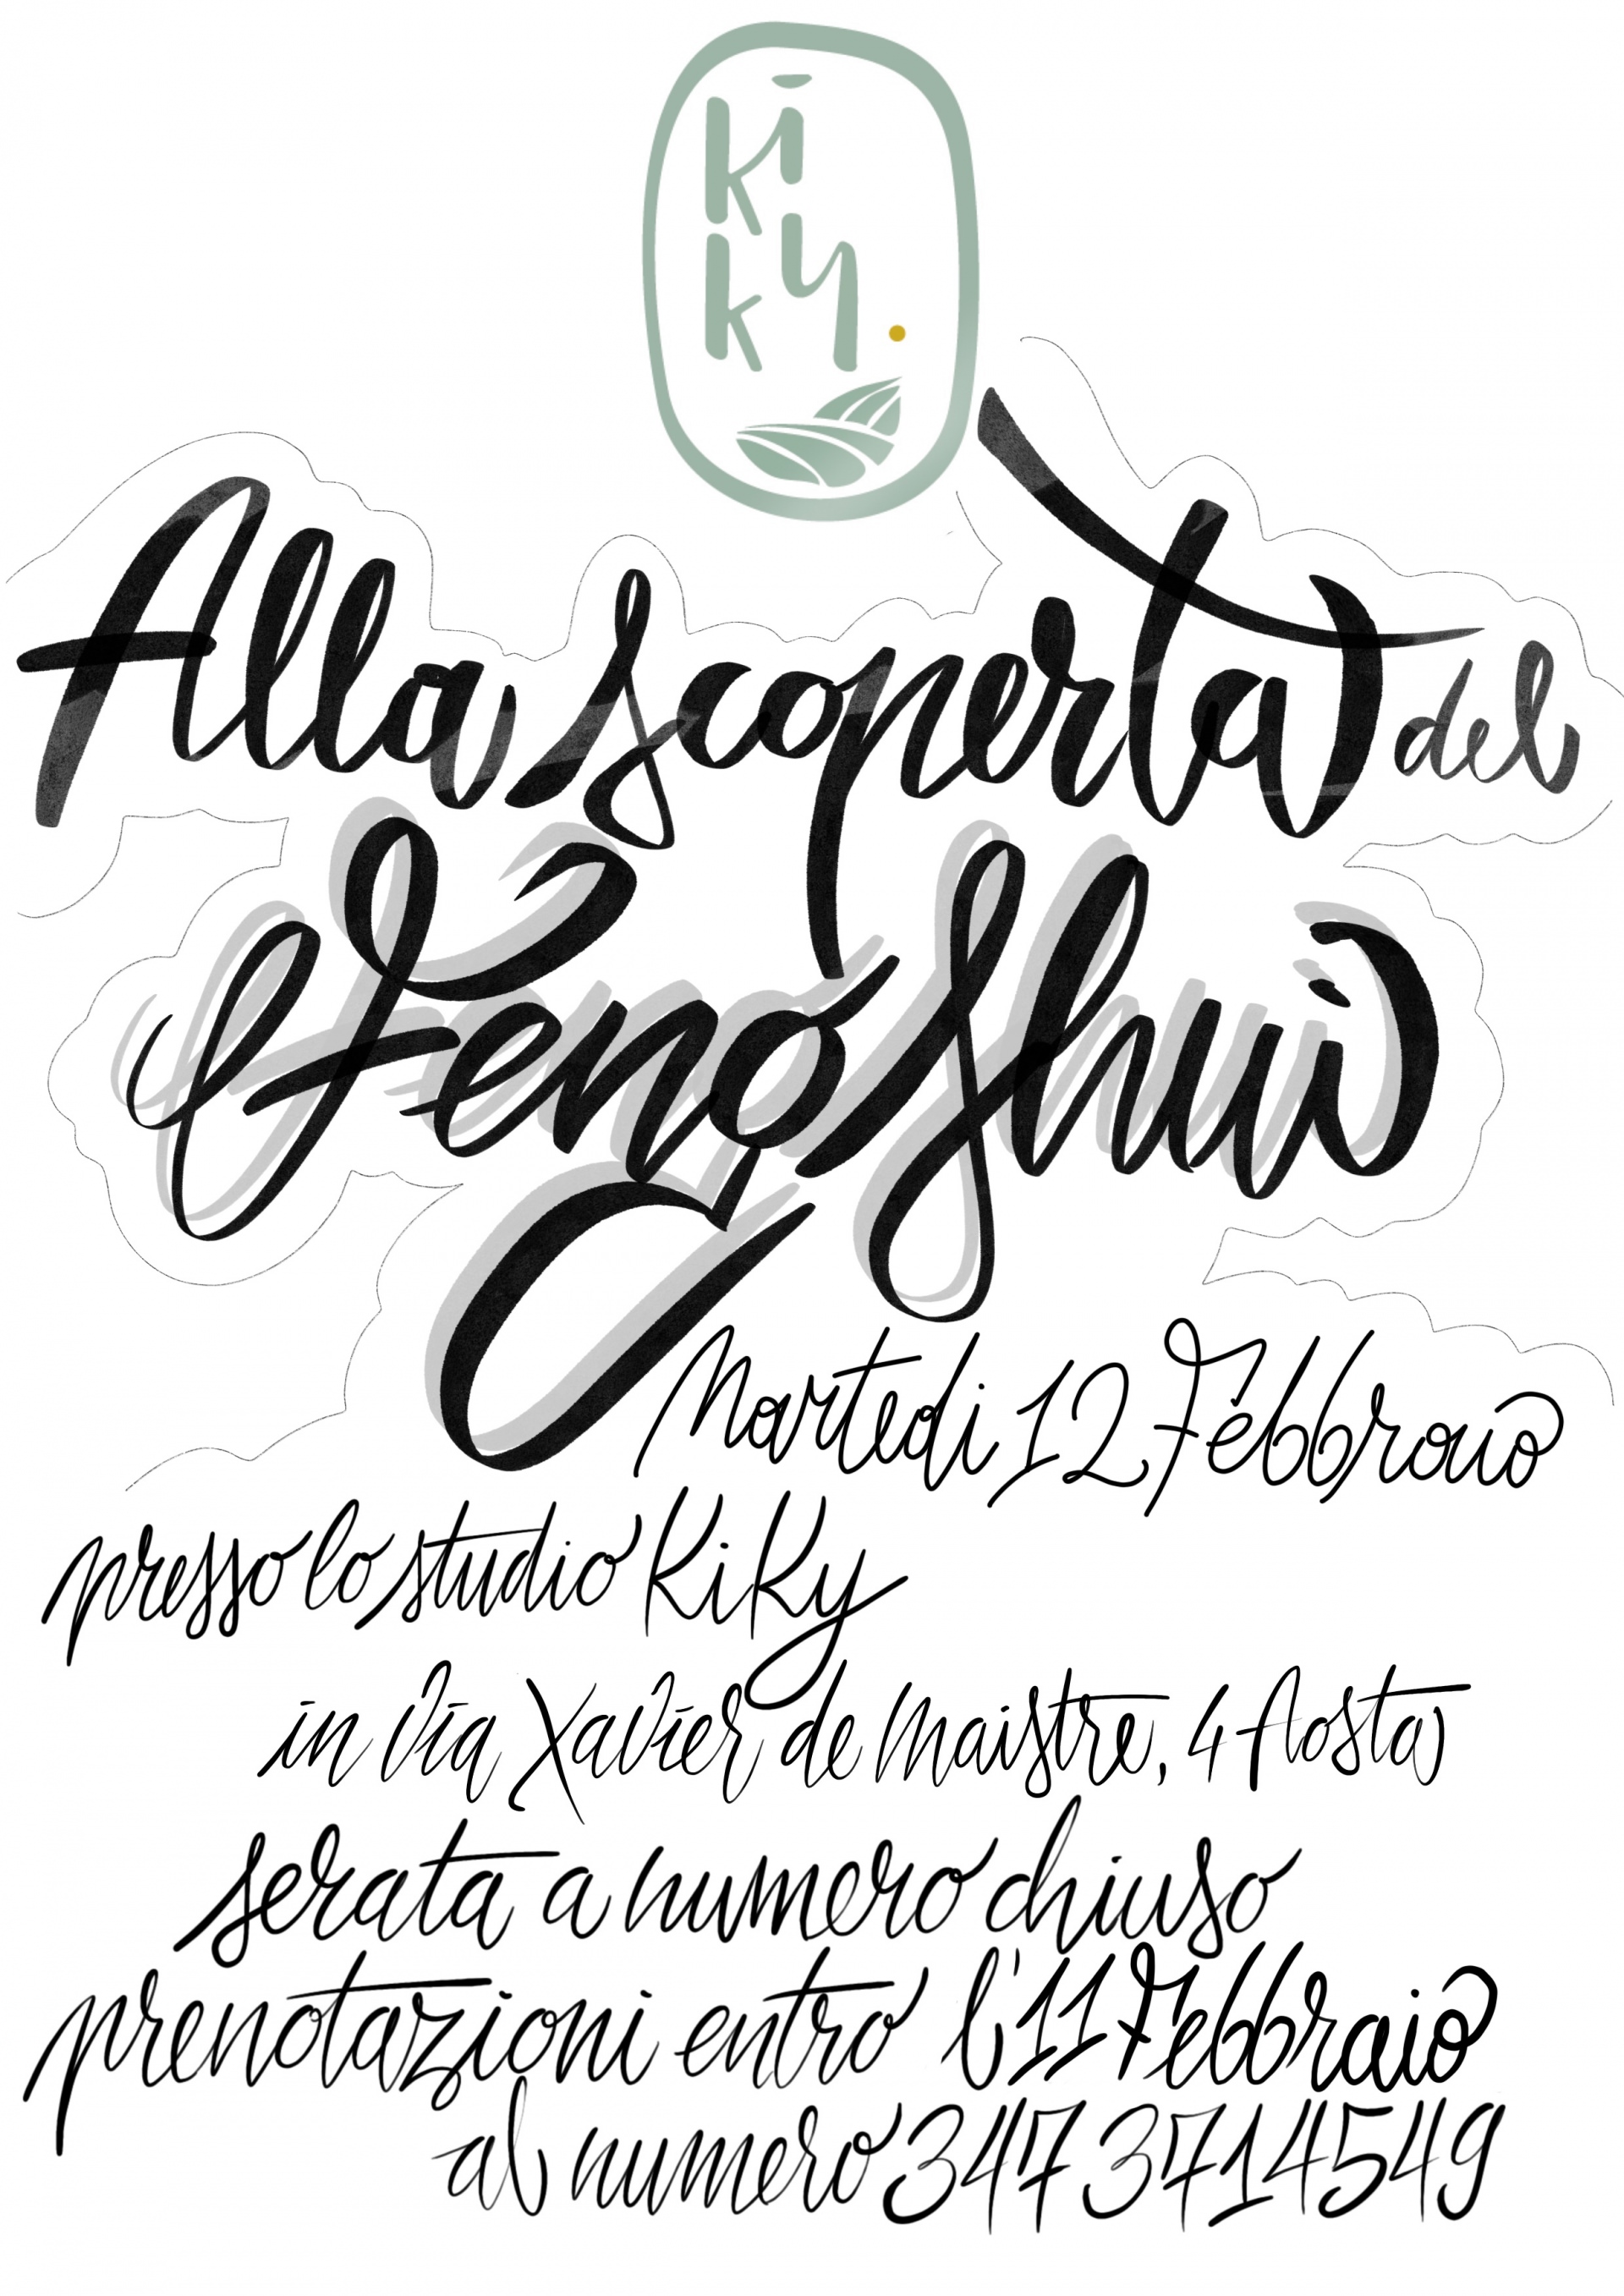 kiky.
Alla scoperta del
Feng Shui
Martedi 12 Febbraio
presso lo studio KiKy
in Via Xavier de Maistre, 4 Aosta
serata a numero chiuso
prenotazioni entro l'11 Febbraio
al numero 347 3714549